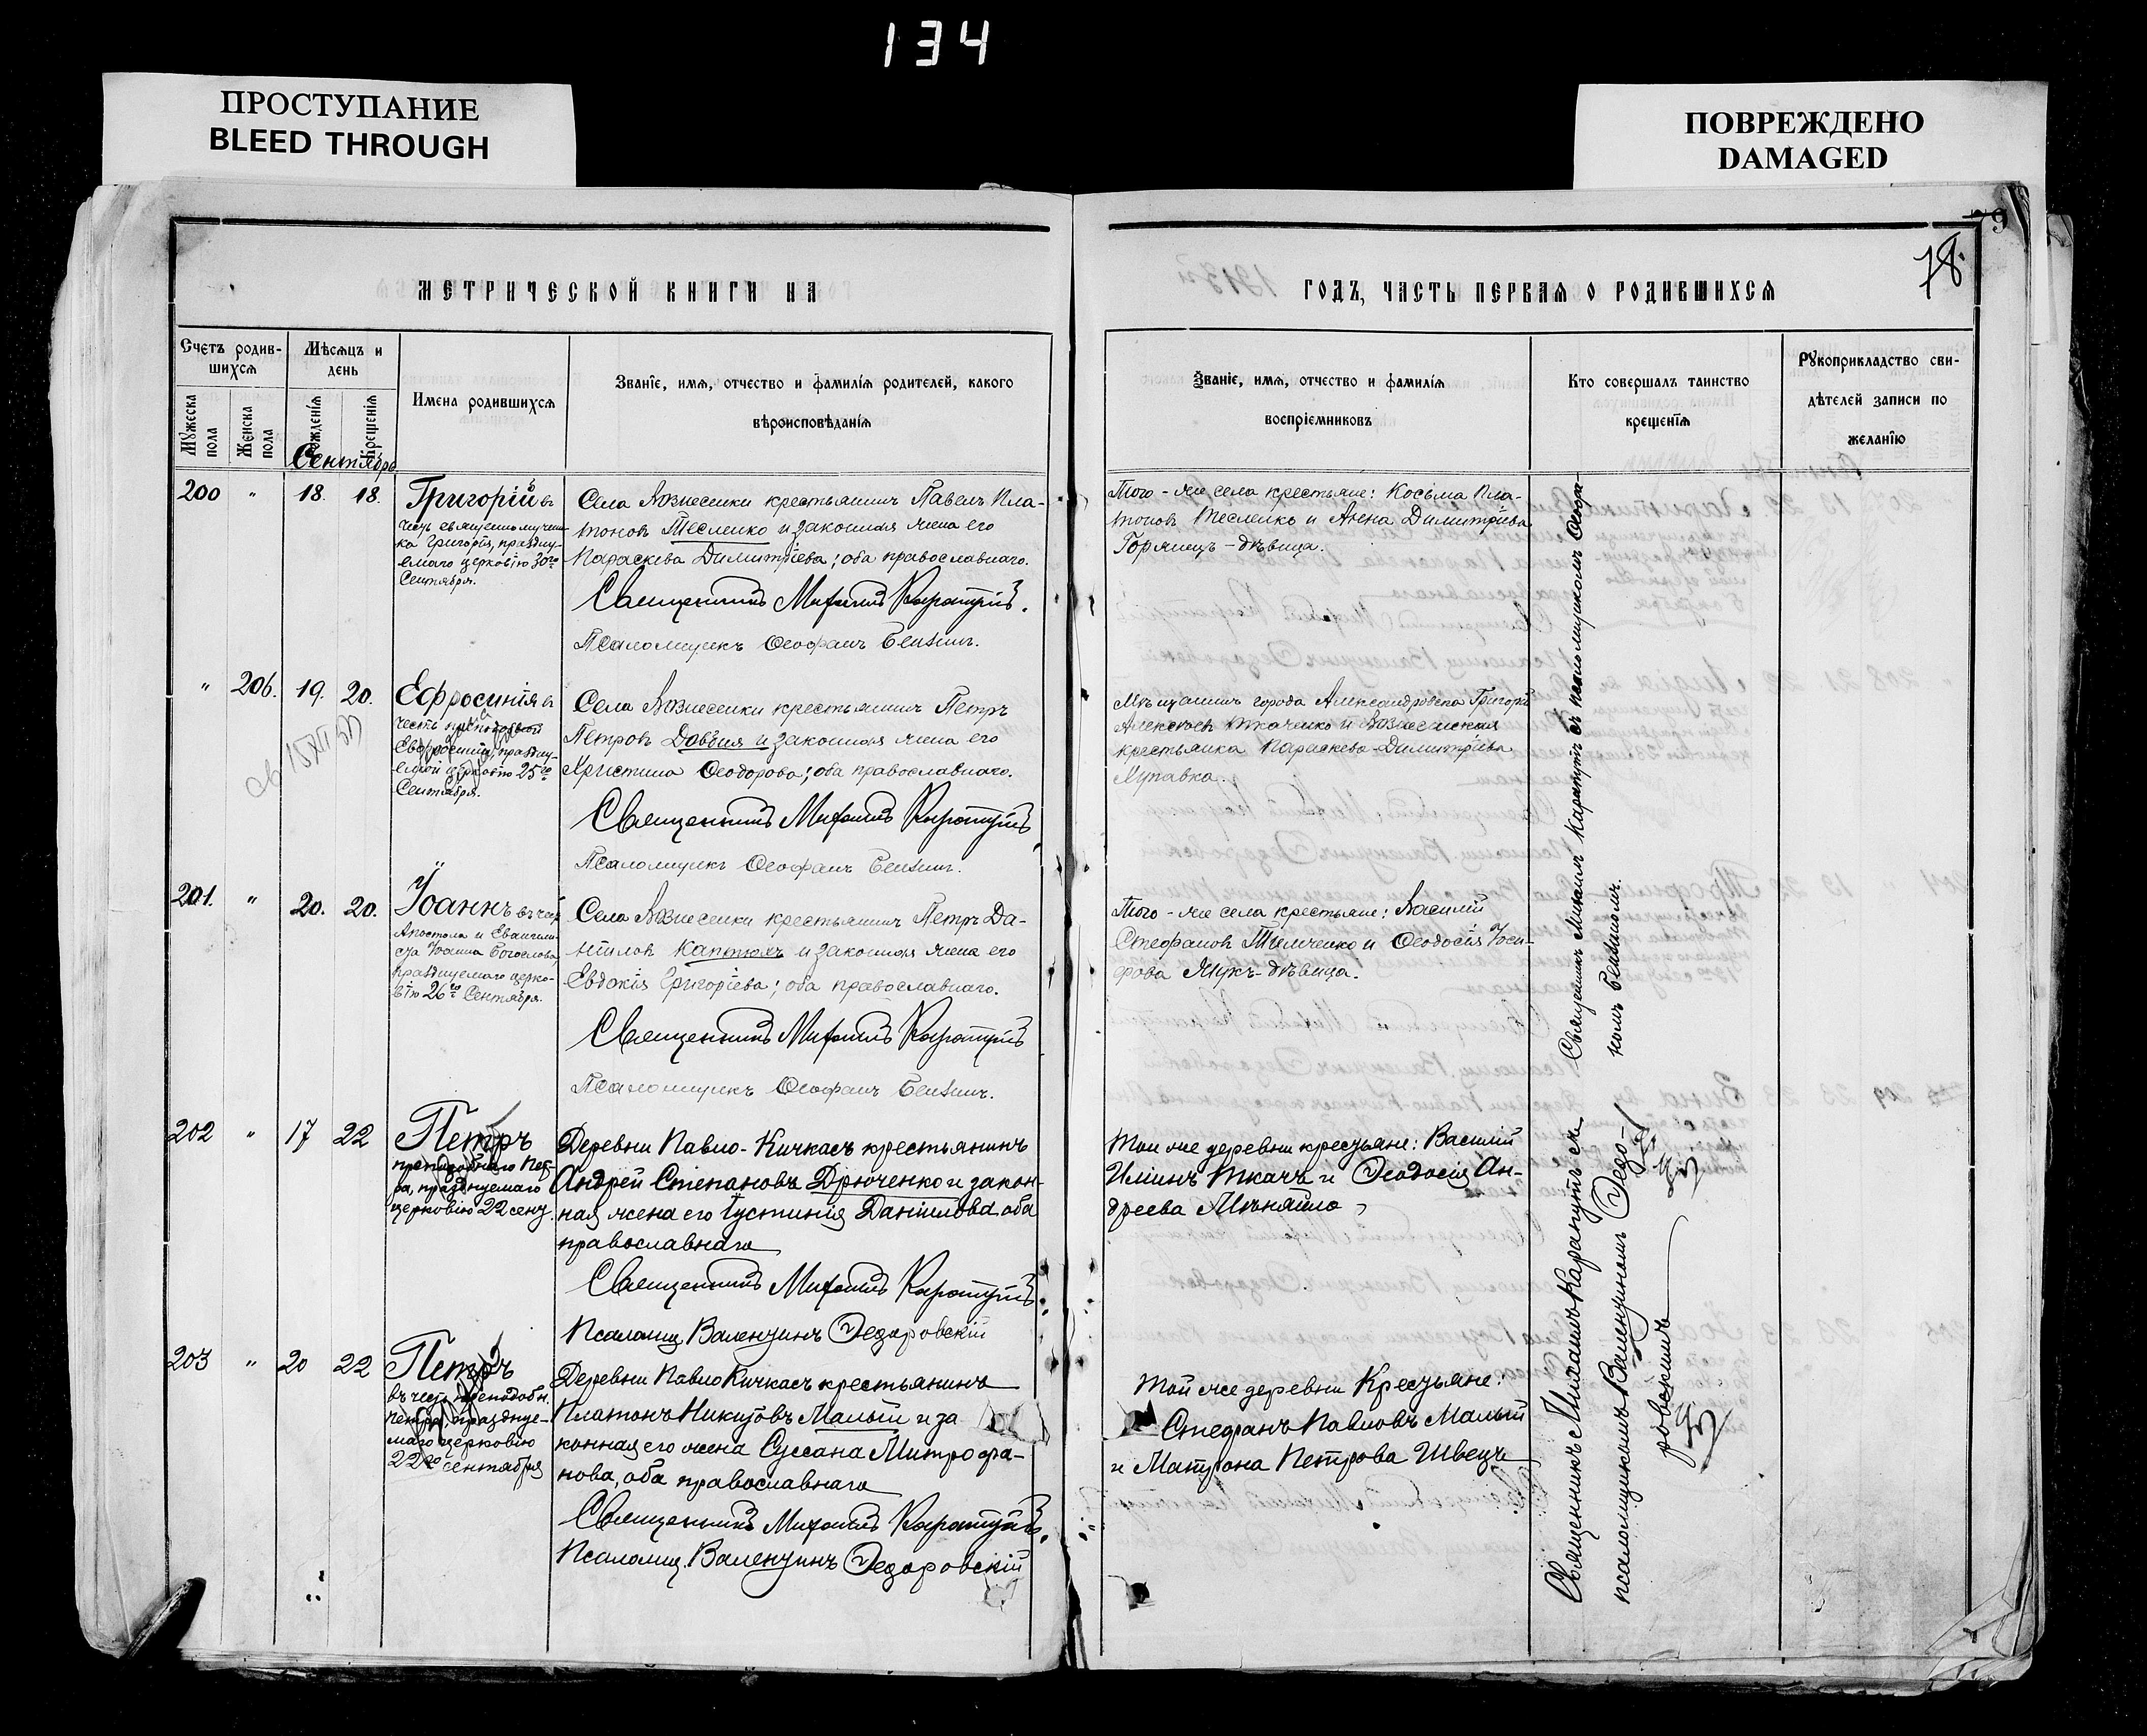 134
ПРОСТУПАНИЕ
BLEED THROUGH
ПОВРЕЖДЕНО
DAMAGED
79
78.
МЕТРИЧЕСКОЙ КНИГИ НА
ГОДЪ, ЧАСТЬ ПЕРВАЯ О РОДИВШИХСЯ
Счетъ родив-
шихся
Мѣсяцъ и
день
Мужеска
пола
Женска
пола
Рожденія
Крещенія
Имена родившихся
Званіе, имя, отчество и фамилія родителей, какого
вѣроисповѣданія
Званіе, имя, отчество и фамилія
воспріемниковъ
Кто совершалъ таинство
крещенія
Рукоприкладство сви-
дѣтелей записи по
желанію
Сентябрь
200 " 18. 18.
Григорій въ
честь священномучени-
ка Григорія, праздну-
емаго церковію 30го
Сентября.
Села Вознесенки крестьянинъ Павелъ Пла-
тоновъ Тесленко и законная жена его
Параскева Димитріева; оба православнаго.
Священникъ Михаилъ Карапутъ.
Псаломщикъ Ѳеофанъ
Того-же села крестьяне: Косьма Пла-
тоновъ Тесленко и Анна Димитріева
Горянецъ - дѣвица.
" 206. 19. 20.
Ефросинія въ
честь преподобной
Евфросиніи, праздну-
емой церковію 25го
Сентября.
Села Вознесенки крестьянинъ Петръ
Петровъ Довбня и законная жена его
Христина Ѳеодорова; оба православнаго.
Священникъ Михаилъ Карапутъ
Псаломщикъ Ѳеофанъ
Мѣщанинъ города Александровска Григорій
Алексѣевъ Ткаченко и Вознесенская
крестьянка Параскева Димитріева
201. " 20. 20.
Іоаннъ въ честь
Апостола и Евангели-
ста Іоанна Богослова
празднуемаго церко-
вію 26го Сентября.
Села Вознесенки крестьянинъ Петръ Да-
ніиловъ Каптюхъ и законная жена его
Евдокія Григоріева; оба православнаго.
Священникъ Михаилъ Карапутъ
Псаломщикъ Ѳеофанъ
Того-же села крестьяне: Василій
Стефановъ и Ѳеодосія Іоси-
фова Жукъ - дѣвица.
202 " 17 22
Петръ
преподобнаго Пет-
ра, празднуемаго
церковію 22 сент.
Деревни Павло-Кичкасъ крестьянинъ
Андрей Степановъ Дрюченко и закон-
ная жена его Іустинія Даніилова оба
православнаго
Священникъ Михаилъ Карапутъ
Псаломщ. Валентинъ Ѳедоровскій
Той же деревни крестьяне: Василій
Ильинъ Ткачъ и Ѳеодосія Ан-
дреева
203 " 20 22
Петръ
въ честь преподобн.
Петра, праздне-
маго церковію
22го сентября
Деревни Павло Кичкасъ крестьянинъ
Платонъ Никитовъ Малый и за
конная его жена Сусанна Митрофа-
нова, оба православнаго
Священникъ Михаилъ Карапутъ.
Псаломщ. Валентинъ Ѳедоровскій
Той же деревни Крестьяне:
Стефанъ Павловъ Малый
и Матрона Петрова Швецъ
Священникъ Михаилъ Карапутъ съ псаломщикомъ Ѳеофа-
номъ
Священникъ Михаилъ Карапутъ съ
псаломщикомъ Валентиномъ Ѳедо-
ровскимъ